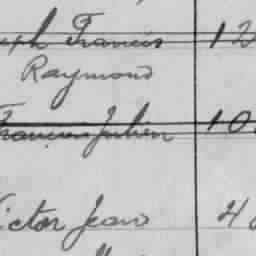 eph Francis 12
Raymond
Francis Julien 10
ictor Jean 4